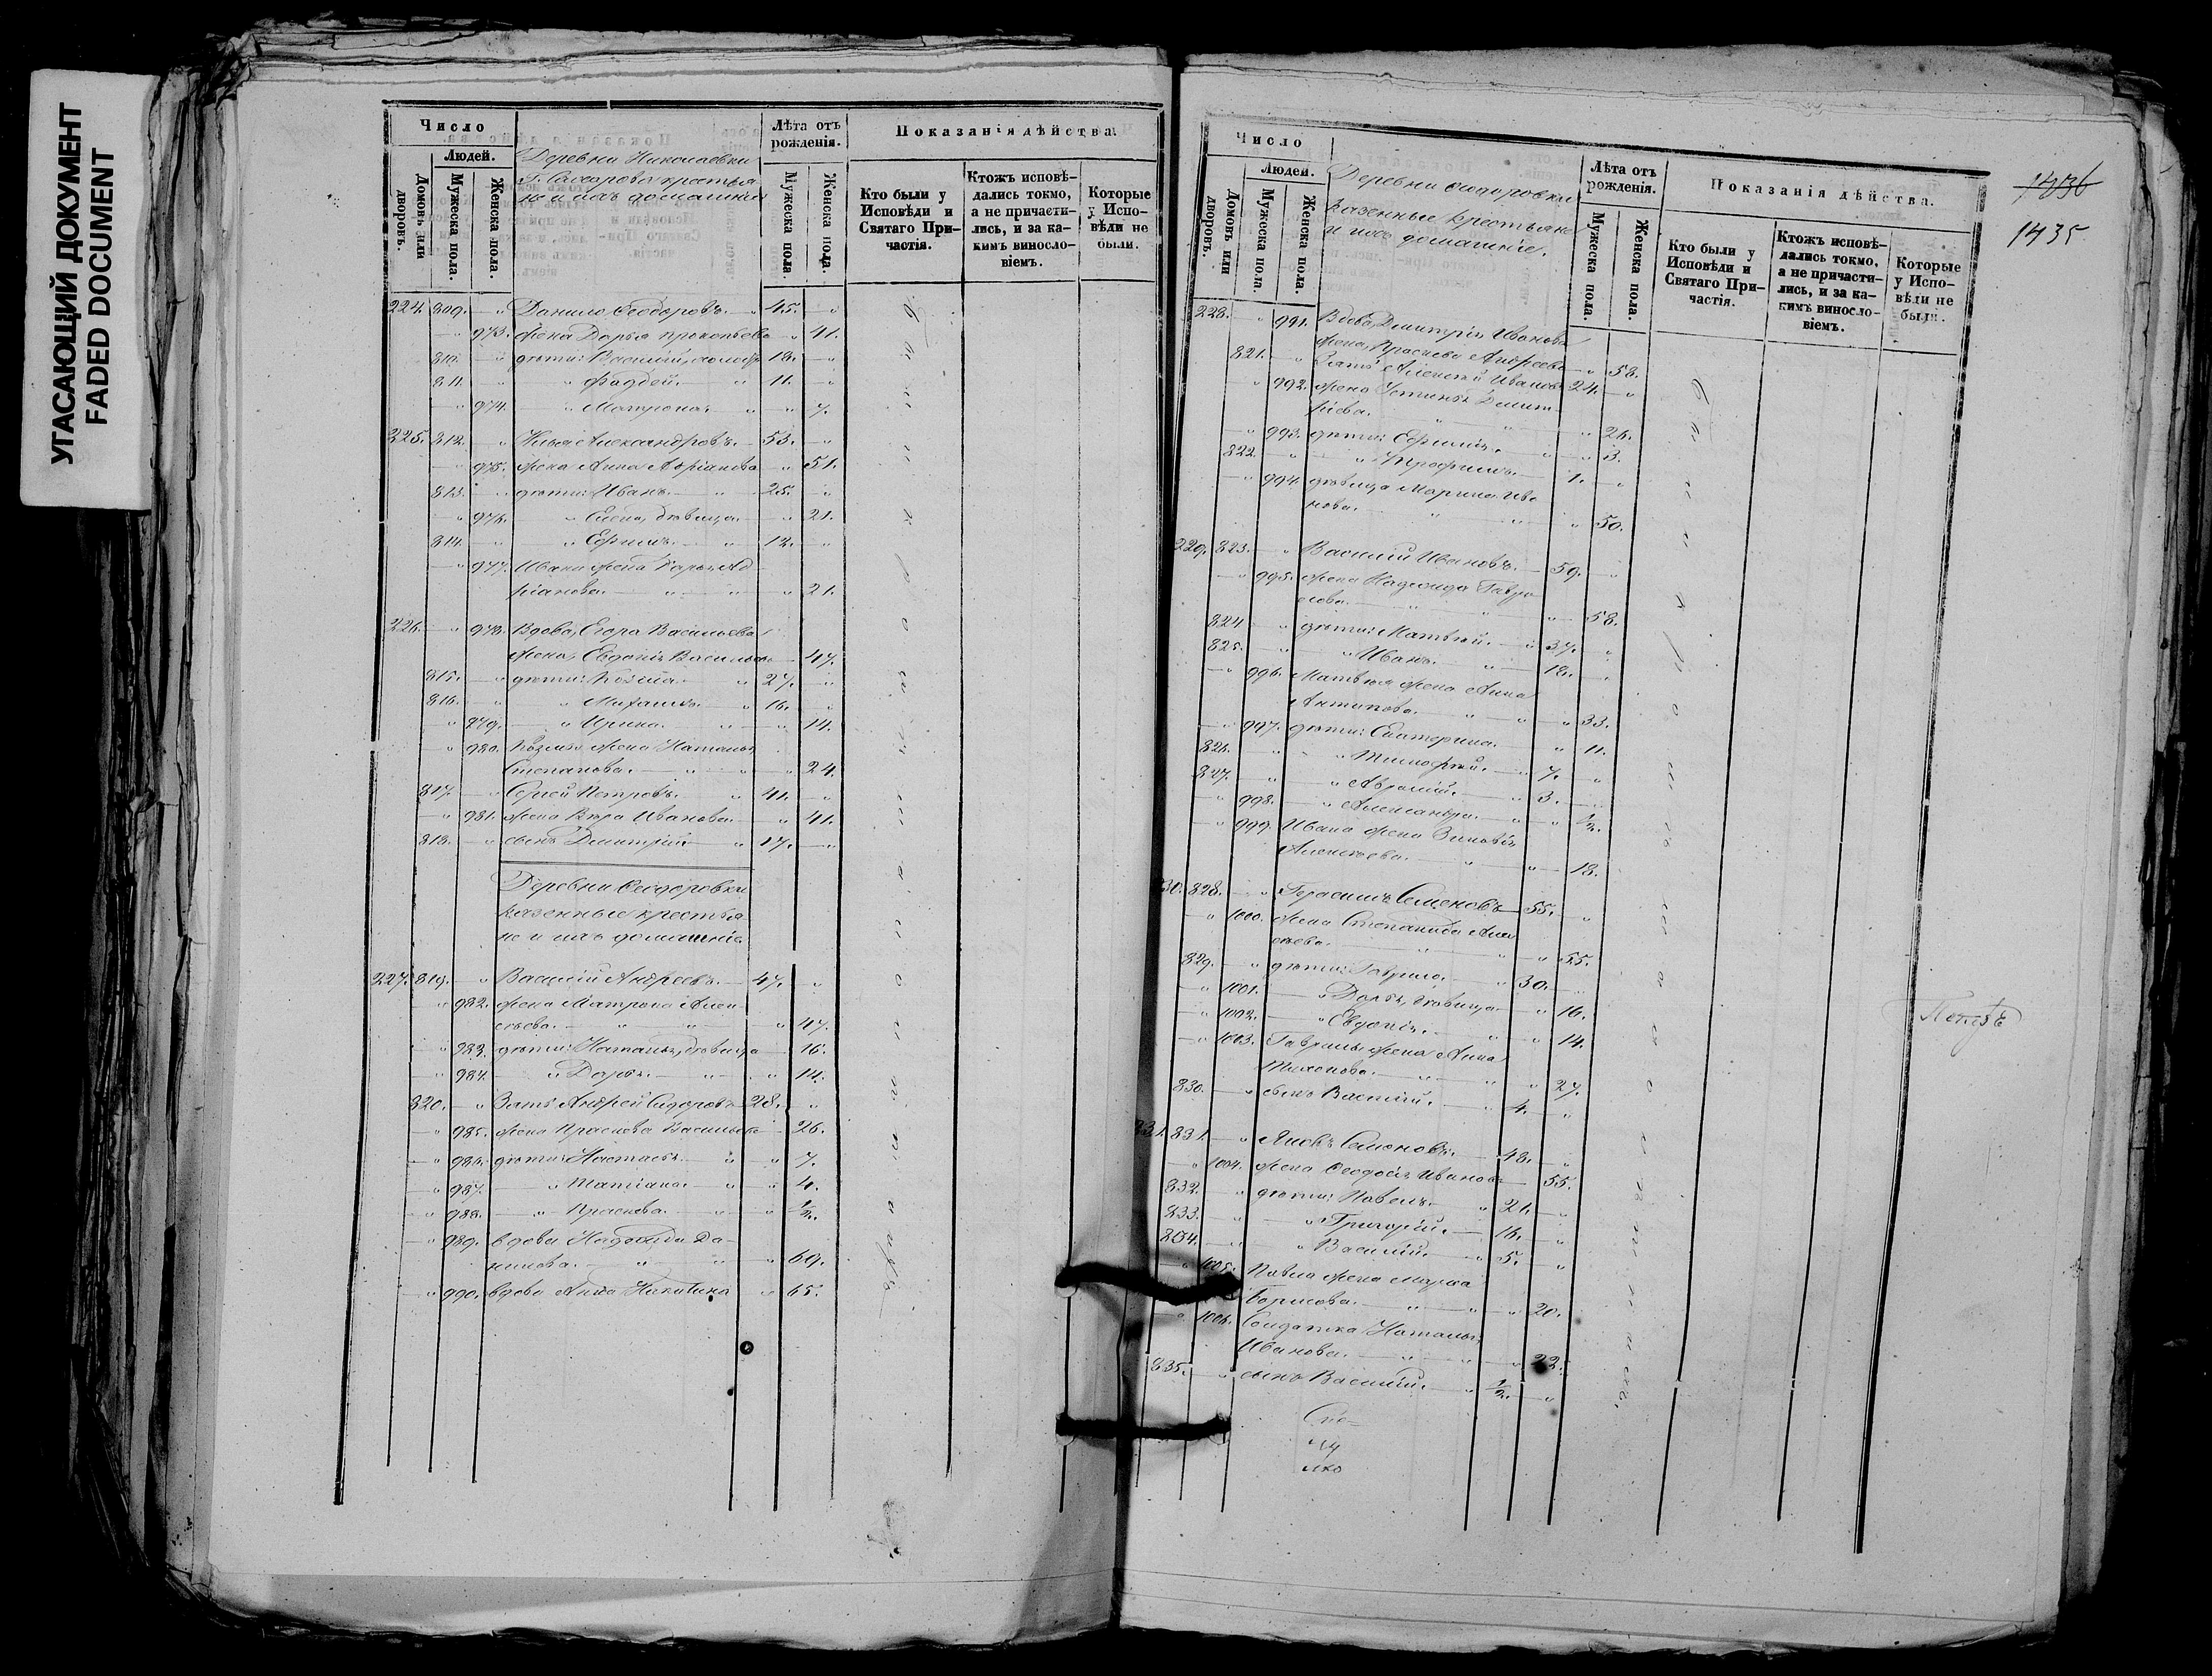 УГАСАЮЩИЙ ДОКУМЕНТ
FADED DOCUMENT
Число
Людей.
Домовъ или дворовъ.
Мужеска пола.
Женска пола.
Деревни Николаевки
крестья
не и ихъ домашнія
Лѣта отъ рожденія.
Мужеска пола.
Женска пола.
Показанія дѣйства.
Кто были у Исповѣди и Святаго Причастія.
Ктожъ исповѣдались токмо, а не причастились, и за какимъ винословіемъ.
Которые у Исповѣди не были.
224. 809. " Данило Ѳеодоровъ. " 45. "
" 973. жена Дарья Прокопьева " 41.
810. " дѣти: Василій, 18. "
811. " " Фаддей. " 11. "
" 974. " Матрона. " " 7.
225. 812. " Илья Александровъ. 53. "
" 975. жена Анна Адріанова " 51.
813. " дѣти: Иванъ. " 25. "
" 976. " Елена, дѣвица. " 21.
814. " " Ефимъ. " 12. "
" 977. Ивана жена Дарья Ад
ріанова. " " " 21.
226. " 978. Вдова, Егора Васильева
жена, Евдокія Васильева 47.
815. " дѣти: Козма. " 27. "
816. " " Михаилъ. " 16. "
" 979. " Ирина. " " 14.
" 980. Козмы жена Наталья
Степанова. " " " 24.
817. " Сергей Петровъ. " 41. "
" 981. жена Вѣра Иванова. " 41.
818. " сынъ Димитрій " 17. "
Деревни Ѳеодоровки
казенные крестья
не и ихъ домашніе
227. 819. " Василій Андреевъ. 47. "
" 982. жена Матрона Алек
сѣева. " " " 47.
" 983. дѣти: Наталья, дѣвица 16.
" 984. " Дарья. " " 14.
820. " Зять Андрей Сидоровъ 28. "
" 985. жена Праскева Васильева 26.
" 986. дѣти: Настасья. " " 7.
" 987. " Татіана. " " 4.
" 988. " Праскева. " " 1/2.
" 989. вдова Надежда Да
нилова. " " " 69.
" 990. вдова Анна Никитина " 65.
Число
Людей.
Домовъ или дворовъ.
Мужеска пола.
Женска пола.
Деревни Ѳеодоровки
казенные крестьяне
и ихъ домашніе.
Лѣта отъ рожденія.
Мужеска пола.
Женска пола.
Показанія дѣйства.
Кто были у Исповѣди и Святаго Причастія.
Ктожъ исповѣдались токмо, а не причастились, и за какимъ винословіемъ.
Которые у Исповѣди не были.
1436
1435
228. " 991. Вдова, Димитрія Иванова
жена, Праскева Андреева " 58.
821. " Зять Алексѣй Ивановъ 24. "
" 992. жена Устинья Димит
ріева. " " " 26.
" 993. дѣти: Ефимія. " " 3.
822. " " Трофимъ. 1. "
" 994. дѣвица Марина Ива
нова. " " " 50.
229. 823. " Василій Ивановъ. 59. "
" 995. жена Надежда Гаври
лова. " " " 58.
824. " дѣти: Матвѣй. " 37. "
825. " " Иванъ. " 18. "
" 996. Матвѣя жена Анна
Антипова. " " " 33.
" 997. дѣти: Екатерина. " 11.
826. " " Тимофей. " 7. "
827. " " Аврамій. " 3. "
" 998. " Александра. " " 1/2.
" 999. Ивана жена Зиновія
Алексѣева. " " 18.
30. 828. " Герасимъ Семеновъ 55. "
" 1000. жена Степанида Алек
сѣева. " " 55.
829. " дѣти: Гаврило. " 30. "
" 1001. " Дарья, дѣвица " 16.
" 1002. " Евдокія. " " 14.
" 1003. Гаврилы жена Анна
Тихонова. " " " 27.
830. " сынъ Василій. " 4. "
231. 831. " Яковъ Семеновъ. 48. "
" 1004. жена Ѳеодосія Иванова 55.
832. " дѣти: Павелъ. " 21. "
833. " " Григорій. 16. "
834. " " Василій. " 5. "
" 1005. Павла жена Марѳа
Борисова. " " " 20.
" 1006. Солдатка Наталья
Иванова. " " " 22.
835. " сынъ Василій. " 1/2. "